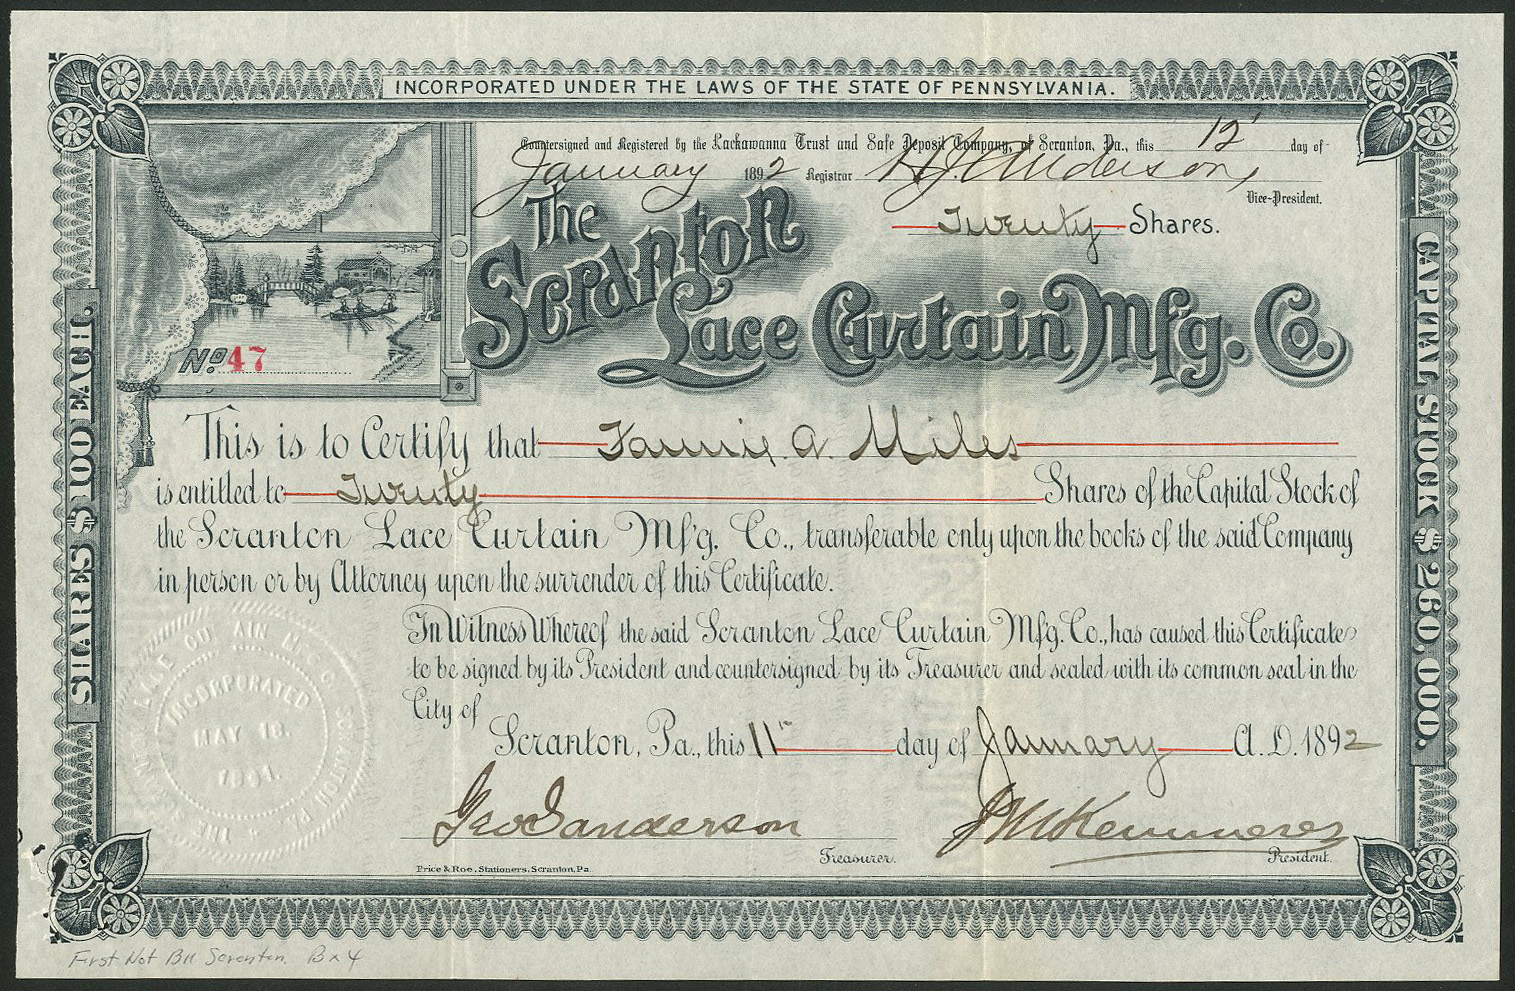 INCORPORATED UNDER THE LAWS OF THE STATE OF PENNSYLVANIA.
Countersigned and Registered by the Lackawanna Trust and Safe Deposit Company, of Scranton, Pa., this 12 day of
January 1892 Registrar H J Anderson,
Vice-President.
Twenty Shares.
The
Scranton
Lace Curtain Mf'g. Co.
No. 47
SHARES $100 EACH.
CAPITAL STOCK $260,000.
This is to Certify that Fannie A. Miles
is entitled to Twenty Shares of the Capital Stock of
the Scranton Lace Curtain Mf'g. Co., transferable only upon the books of the said Company
in person or by Attorney upon the surrender of this Certificate.
In Witness Whereof the said Scranton Lace Curtain Mf'g. Co., has caused this Certificate
to be signed by its President and countersigned by its Treasurer and sealed with its common seal in the
City of
Scranton, Pa., this 11th day of January A.D. 1892
Geo Sanderson
Treasurer.
J M Kemmerer
President.
Price & Roe, Stationers, Scranton, Pa.
INCORPORATED
MAY 18.
1891.
First Nat Bk Scranton. Bx 4